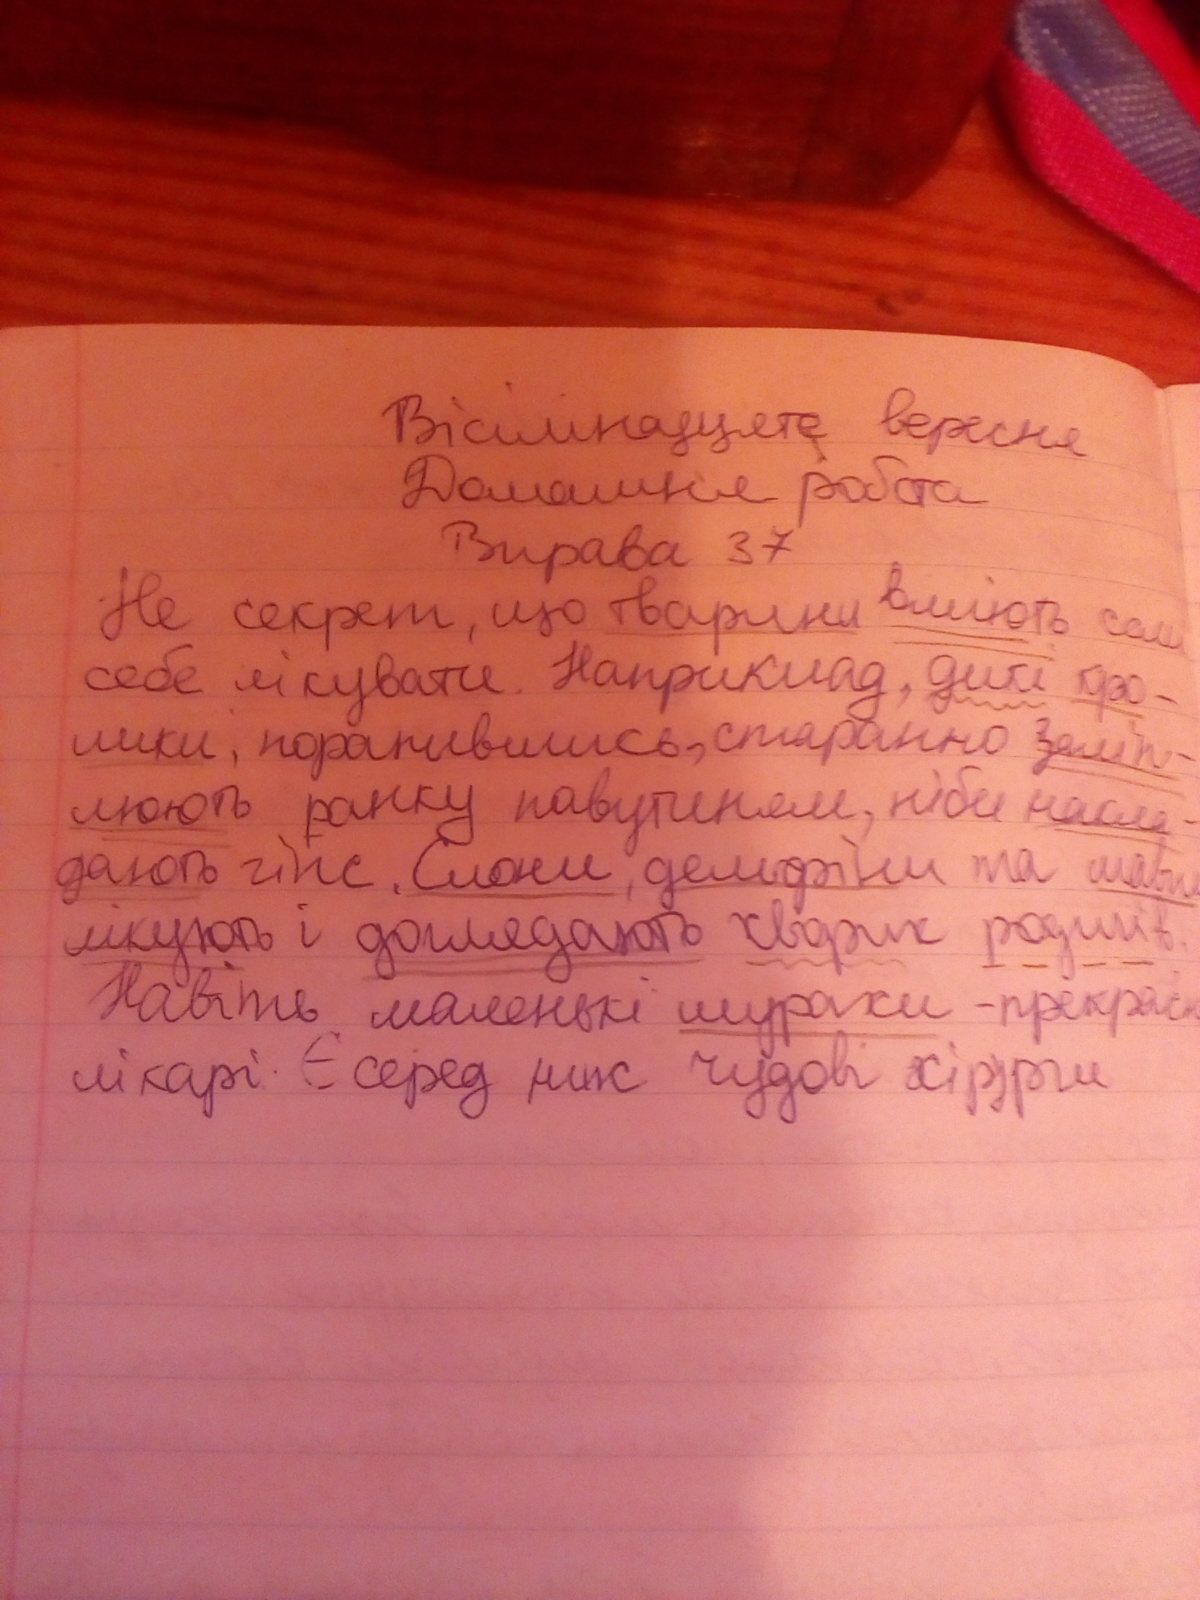 Вісімнадцяте вересня
Домашня робота
Вправа 37
Не секрет, що тварини вміють самі
себе лікувати. Наприклад, дикі кро-
лики, поранившись, старанно заліп-
люють ранку павутиням, ніби накла-
дають гіпс. Слони, дельфіни та мавпи
лікують і доглядають хворих родичів.
Навіть маленькі мурахи - прекрасн
лікарі. Є серед них чудові хірурги